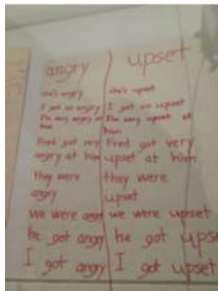 angry upset
she's angry she's upset
I got so angry I got so upset
I'm very angry at I'm very upset at
him him
Fred got very Fred got very
angry at him upset at him
they were they were
angry upset
we were angry we were upset
he got angry he got upset
I got angry I got upset